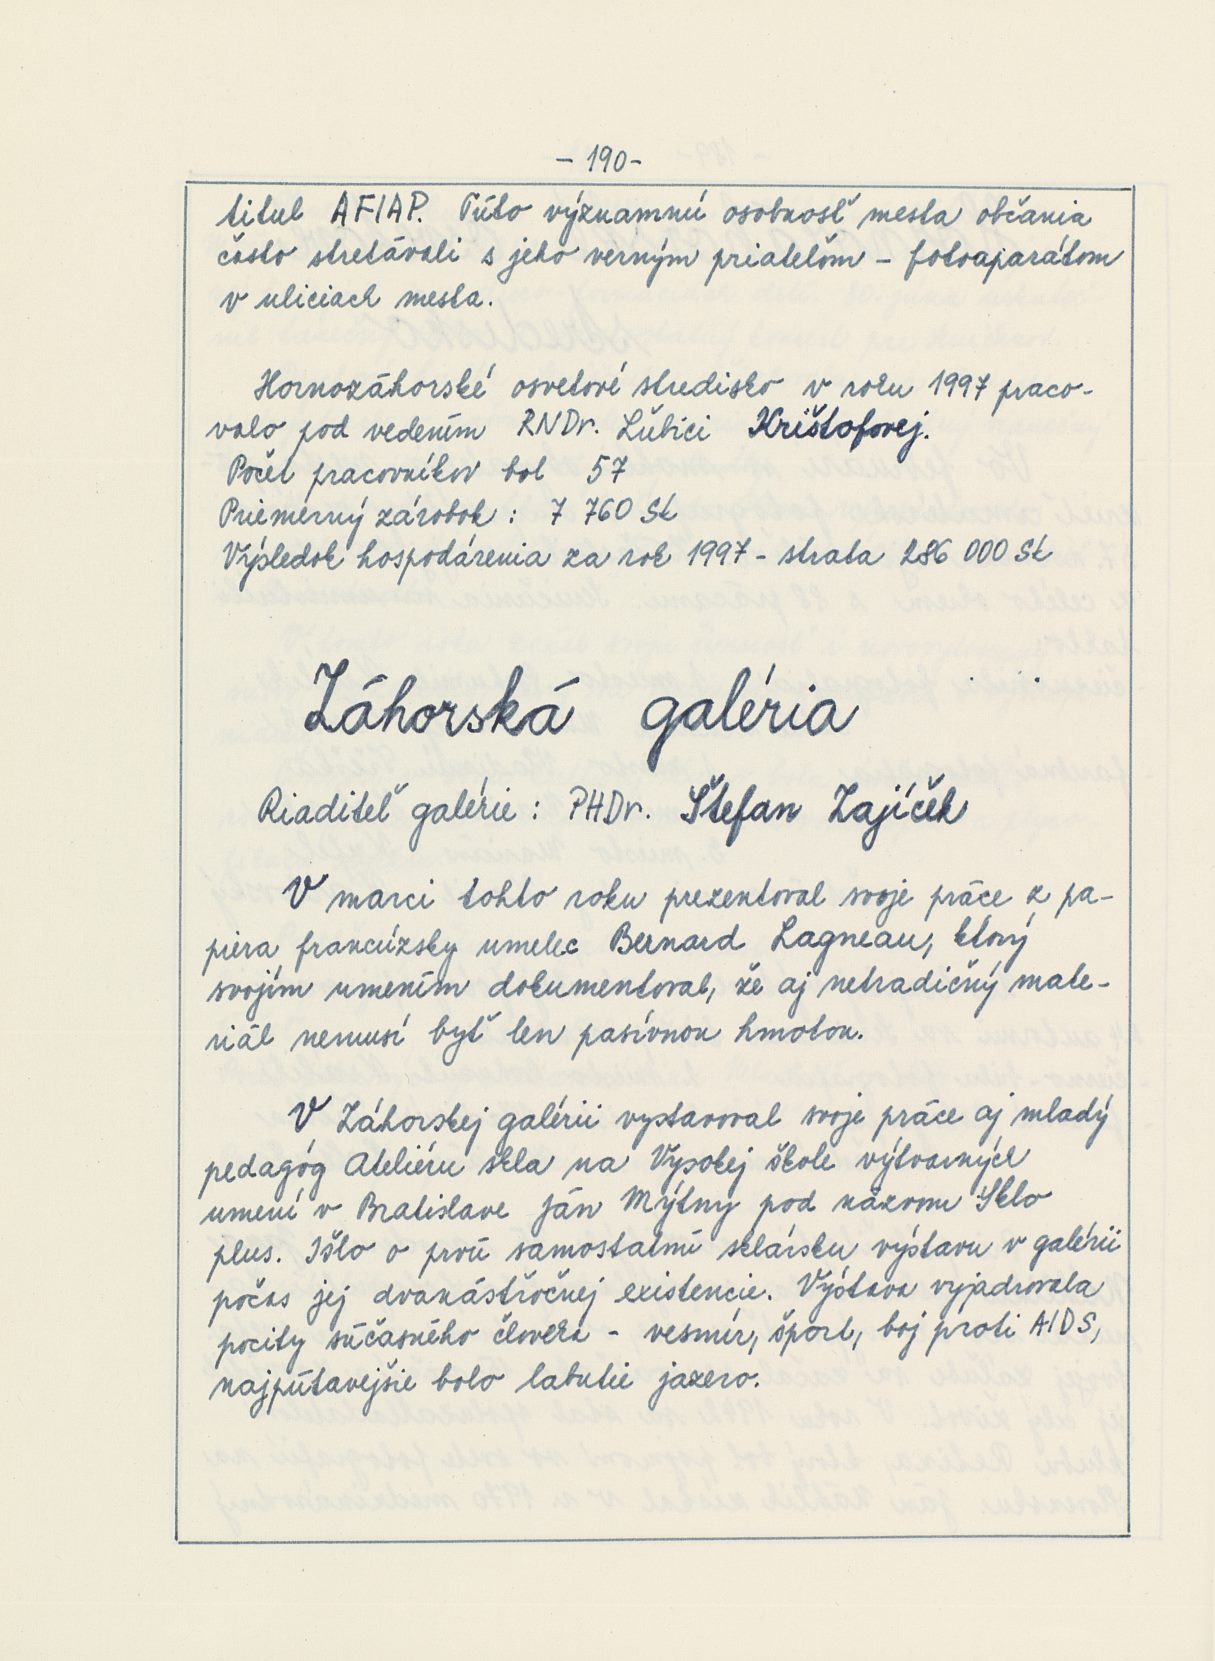 - 190-
titul AFIAP. Túto významnú osobnosť mesta občania
často stretávali s jeho verným priateľom - fotoaparátom
v uliciach mesta.
Hornozáhorské osvetové stredisko v roku 1997 praco-
valo pod vedením RNDr. Ľubici Krištofovej.
Počet pracovníkov bol 57
Priemerný zárobok : 7 760 Sk
Výsledok hospodárenia za rok 1997 - strata 286 000 Sk
Záhorská galéria
Riaditeľ galérie : PHDr. Štefan Zajíček
V marci tohto roku prezentoval svoje práce z pa-
piera francúzsky umelec Bernard Lagneau, ktorý
svojím umením dokumentoval, že aj netradičný mate-
riál nemusí byť len pasívnou hmotou.
V Záhorskej galérii vystavoval svoje práce aj mladý
pedagóg Ateliéru skla na Vysokej škole výtvarných
umení v Bratislave Ján Mýtny pod názvom Sklo
plus. Išlo o prvú samostatnú sklársku výstavu v galérii
počas jej dvanásťročnej existencie. Výstava vyjadrovala
pocity súčasného človeka - vesmír, šport, boj proti AIDS,
najpútavejšie bolo labutie jazero.